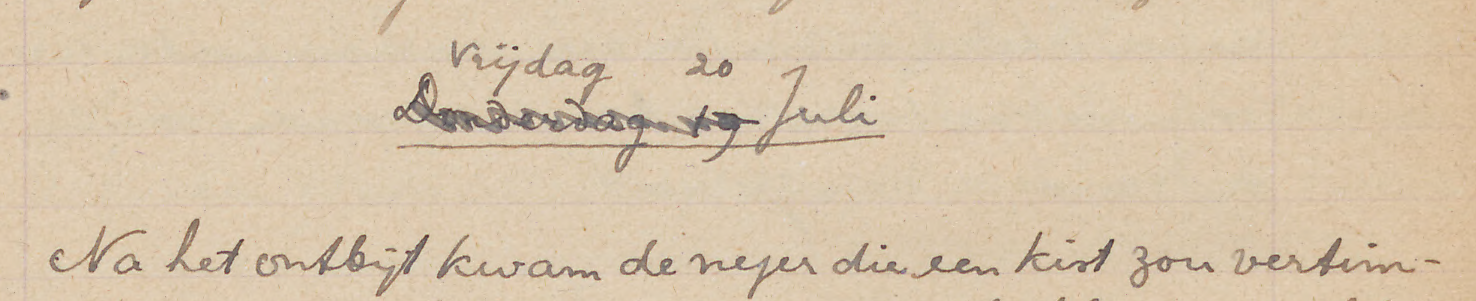 Vrijdag 20
Donderdag 19 Juli
Na het ontbijt kwam de neger die een kist zou vertim-